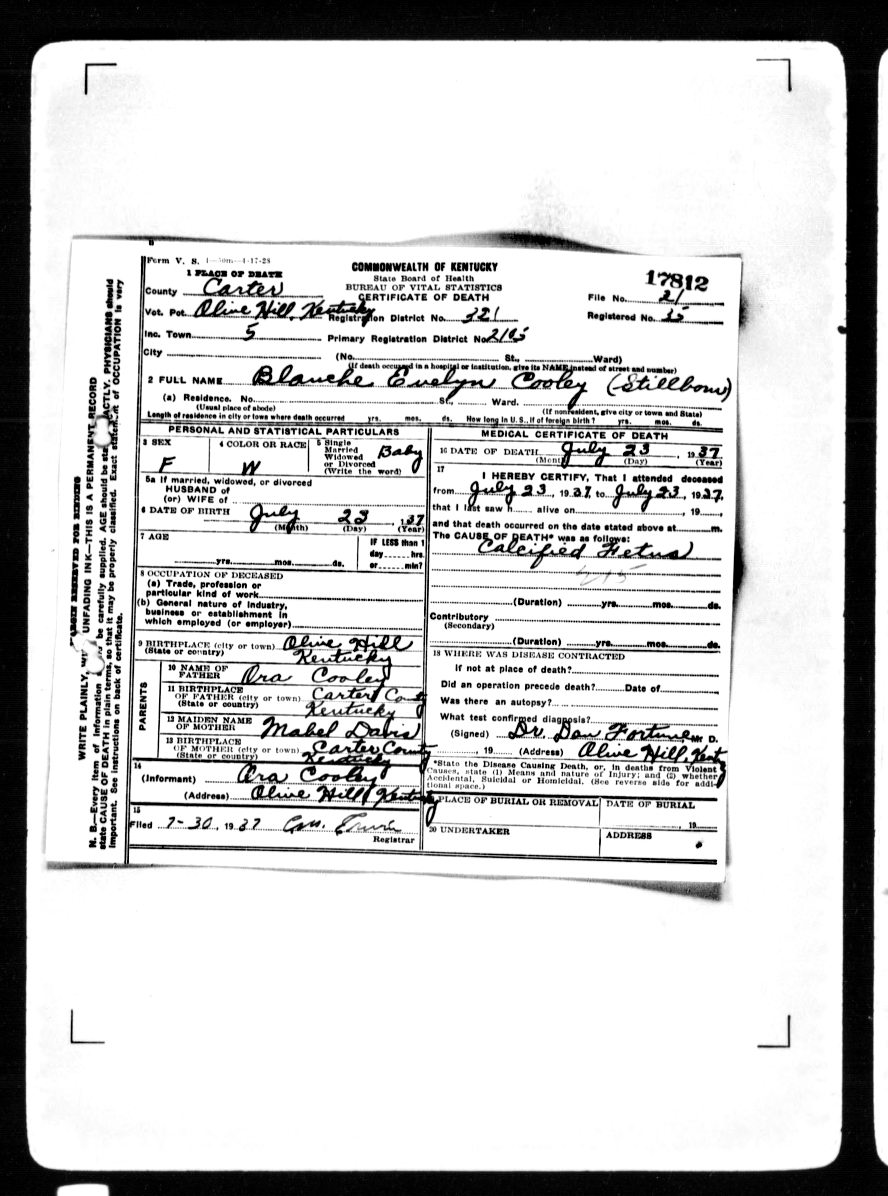 Form V. S. 1—50m—4-17-28
COMMONWEALTH OF KENTUCKY
State Board of Health
BUREAU OF VITAL STATISTICS
CERTIFICATE OF DEATH
17812
File No. 21
Registered No. 35
1 PLACE OF DEATH
County Carter
Vot. Pct. Olive Hill, Kentucky Registration District No. 321
Inc. Town 5 Primary Registration District No. 2105
City (No. St., Ward)
(If death occurred in a hospital or institution, give its NAME instead of street and number)
2 FULL NAME Blanche Evelyn Cooley (Stillborn)
(a) Residence. No. St., Ward.
(Usual place of abode) (If nonresident, give city or town and State)
Length of residence in city or town where death occurred yrs. mos. ds. How long in U. S., if of foreign birth? yrs. mos. ds.
PERSONAL AND STATISTICAL PARTICULARS
3 SEX F
4 COLOR OR RACE W
5 Single
Married
Widowed
or Divorced
(Write the word) Baby
5a If married, widowed, or divorced
HUSBAND of
(or) WIFE of
6 DATE OF BIRTH July 23, 1937
(Month) (Day) (Year)
7 AGE
yrs. mos. ds.
IF LESS than 1
day hrs.
or min?
8 OCCUPATION OF DECEASED
(a) Trade, profession or
particular kind of work
(b) General nature of Industry,
business or establishment in
which employed (or employer)
9 BIRTHPLACE (city or town) Olive Hill
(State or country) Kentucky
PARENTS
10 NAME OF
FATHER Ora Cooley
11 BIRTHPLACE
OF FATHER (city or town) Carter County
(State or country) Kentucky
12 MAIDEN NAME
OF MOTHER Mabel Davis
13 BIRTHPLACE
OF MOTHER (city or town) Carter County
(State or country) Kentucky
14
(Informant) Ora Cooley
(Address) Olive Hill, Kentucky
15
Filed 7-30, 1937
Registrar
MEDICAL CERTIFICATE OF DEATH
16 DATE OF DEATH July 23, 1937
(Month) (Day) (Year)
17
I HEREBY CERTIFY, That I attended deceased
from July 23, 1937, to July 23, 1937,
that I last saw h alive on , 19 ,
and that death occurred on the date stated above at m.
The CAUSE OF DEATH* was as follows:
Calcified Fetus
(Duration) yrs. mos. ds.
Contributory
(Secondary)
(Duration) yrs. mos. ds.
18 WHERE WAS DISEASE CONTRACTED
If not at place of death?
Did an operation precede death? Date of
Was there an autopsy?
What test confirmed diagnosis?
(Signed) Dr. Don Fortune, M. D.
, 19 (Address) Olive Hill, Kenty
*State the Disease Causing Death, or, in deaths from Violent
Causes, state (1) Means and nature of Injury; and (2) whether
Accidental, Suicidal or Homicidal. (See reverse side for addi-
tional space.)
19 PLACE OF BURIAL OR REMOVAL DATE OF BURIAL
, 19
20 UNDERTAKER ADDRESS
MARGIN RESERVED FOR BINDING
WRITE PLAINLY, UNFADING INK—THIS IS A PERMANENT RECORD
N. B.—Every item of information be carefully supplied. AGE should be EXACTLY. PHYSICIANS should
state CAUSE OF DEATH in plain terms, so that it may be properly classified. Exact statement of OCCUPATION is very
important. See instructions on back of certificate.